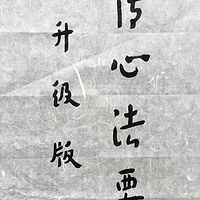 传心法要
升级版